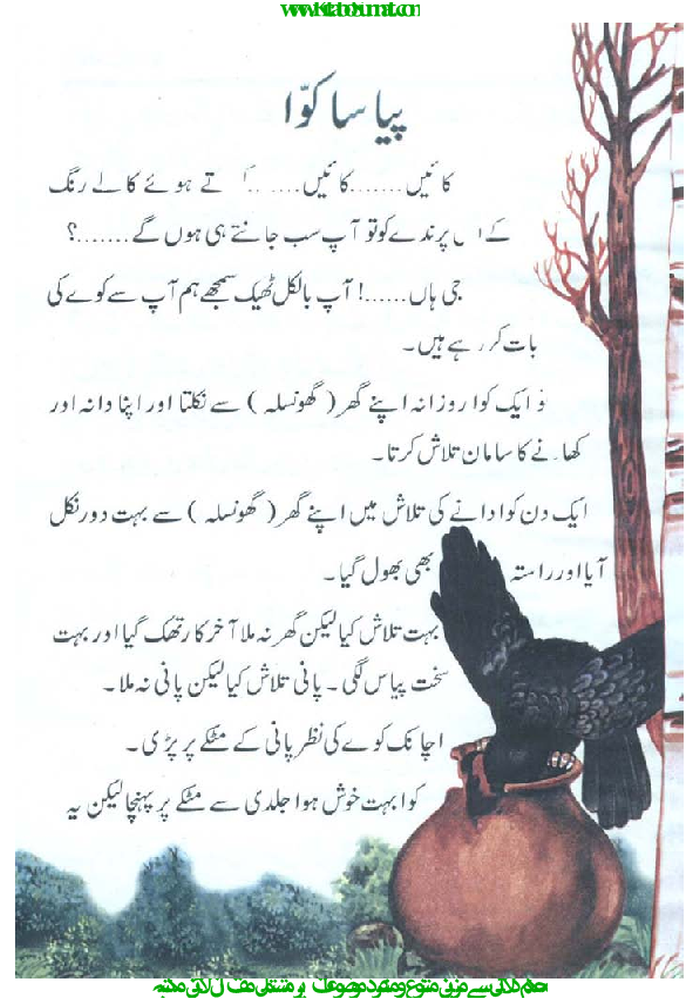 پیاسا کوّا
کائیں.......کائیں....... تے ہوئے کالے رنگ
کے اس پرندے کو تو آپ سب جانتے ہی ہوں گے.......؟
جی ہاں......! آپ بالکل ٹھیک سمجھے ہم آپ سے کوے کی
بات کر رہے ہیں۔
ایک کوا روزانہ اپنے گھر ( گھونسلہ ) سے نکلتا اور اپنا دانہ اور
کھانے کا سامان تلاش کرتا۔
ایک دن کوا دانے کی تلاش میں اپنے گھر ( گھونسلہ ) سے بہت دور نکل
آیا اور راستہ بھی بھول گیا۔
بہت تلاش کیا لیکن گھر نہ ملا آخر کار تھک گیا اور بہت
سخت پیاس لگی ۔ پانی تلاش کیا لیکن پانی نہ ملا ۔
اچانک کوے کی نظر پانی کے مٹکے پر پڑی ۔
کوا بہت خوش ہوا جلدی سے مٹکے پر پہنچا لیکن یہ